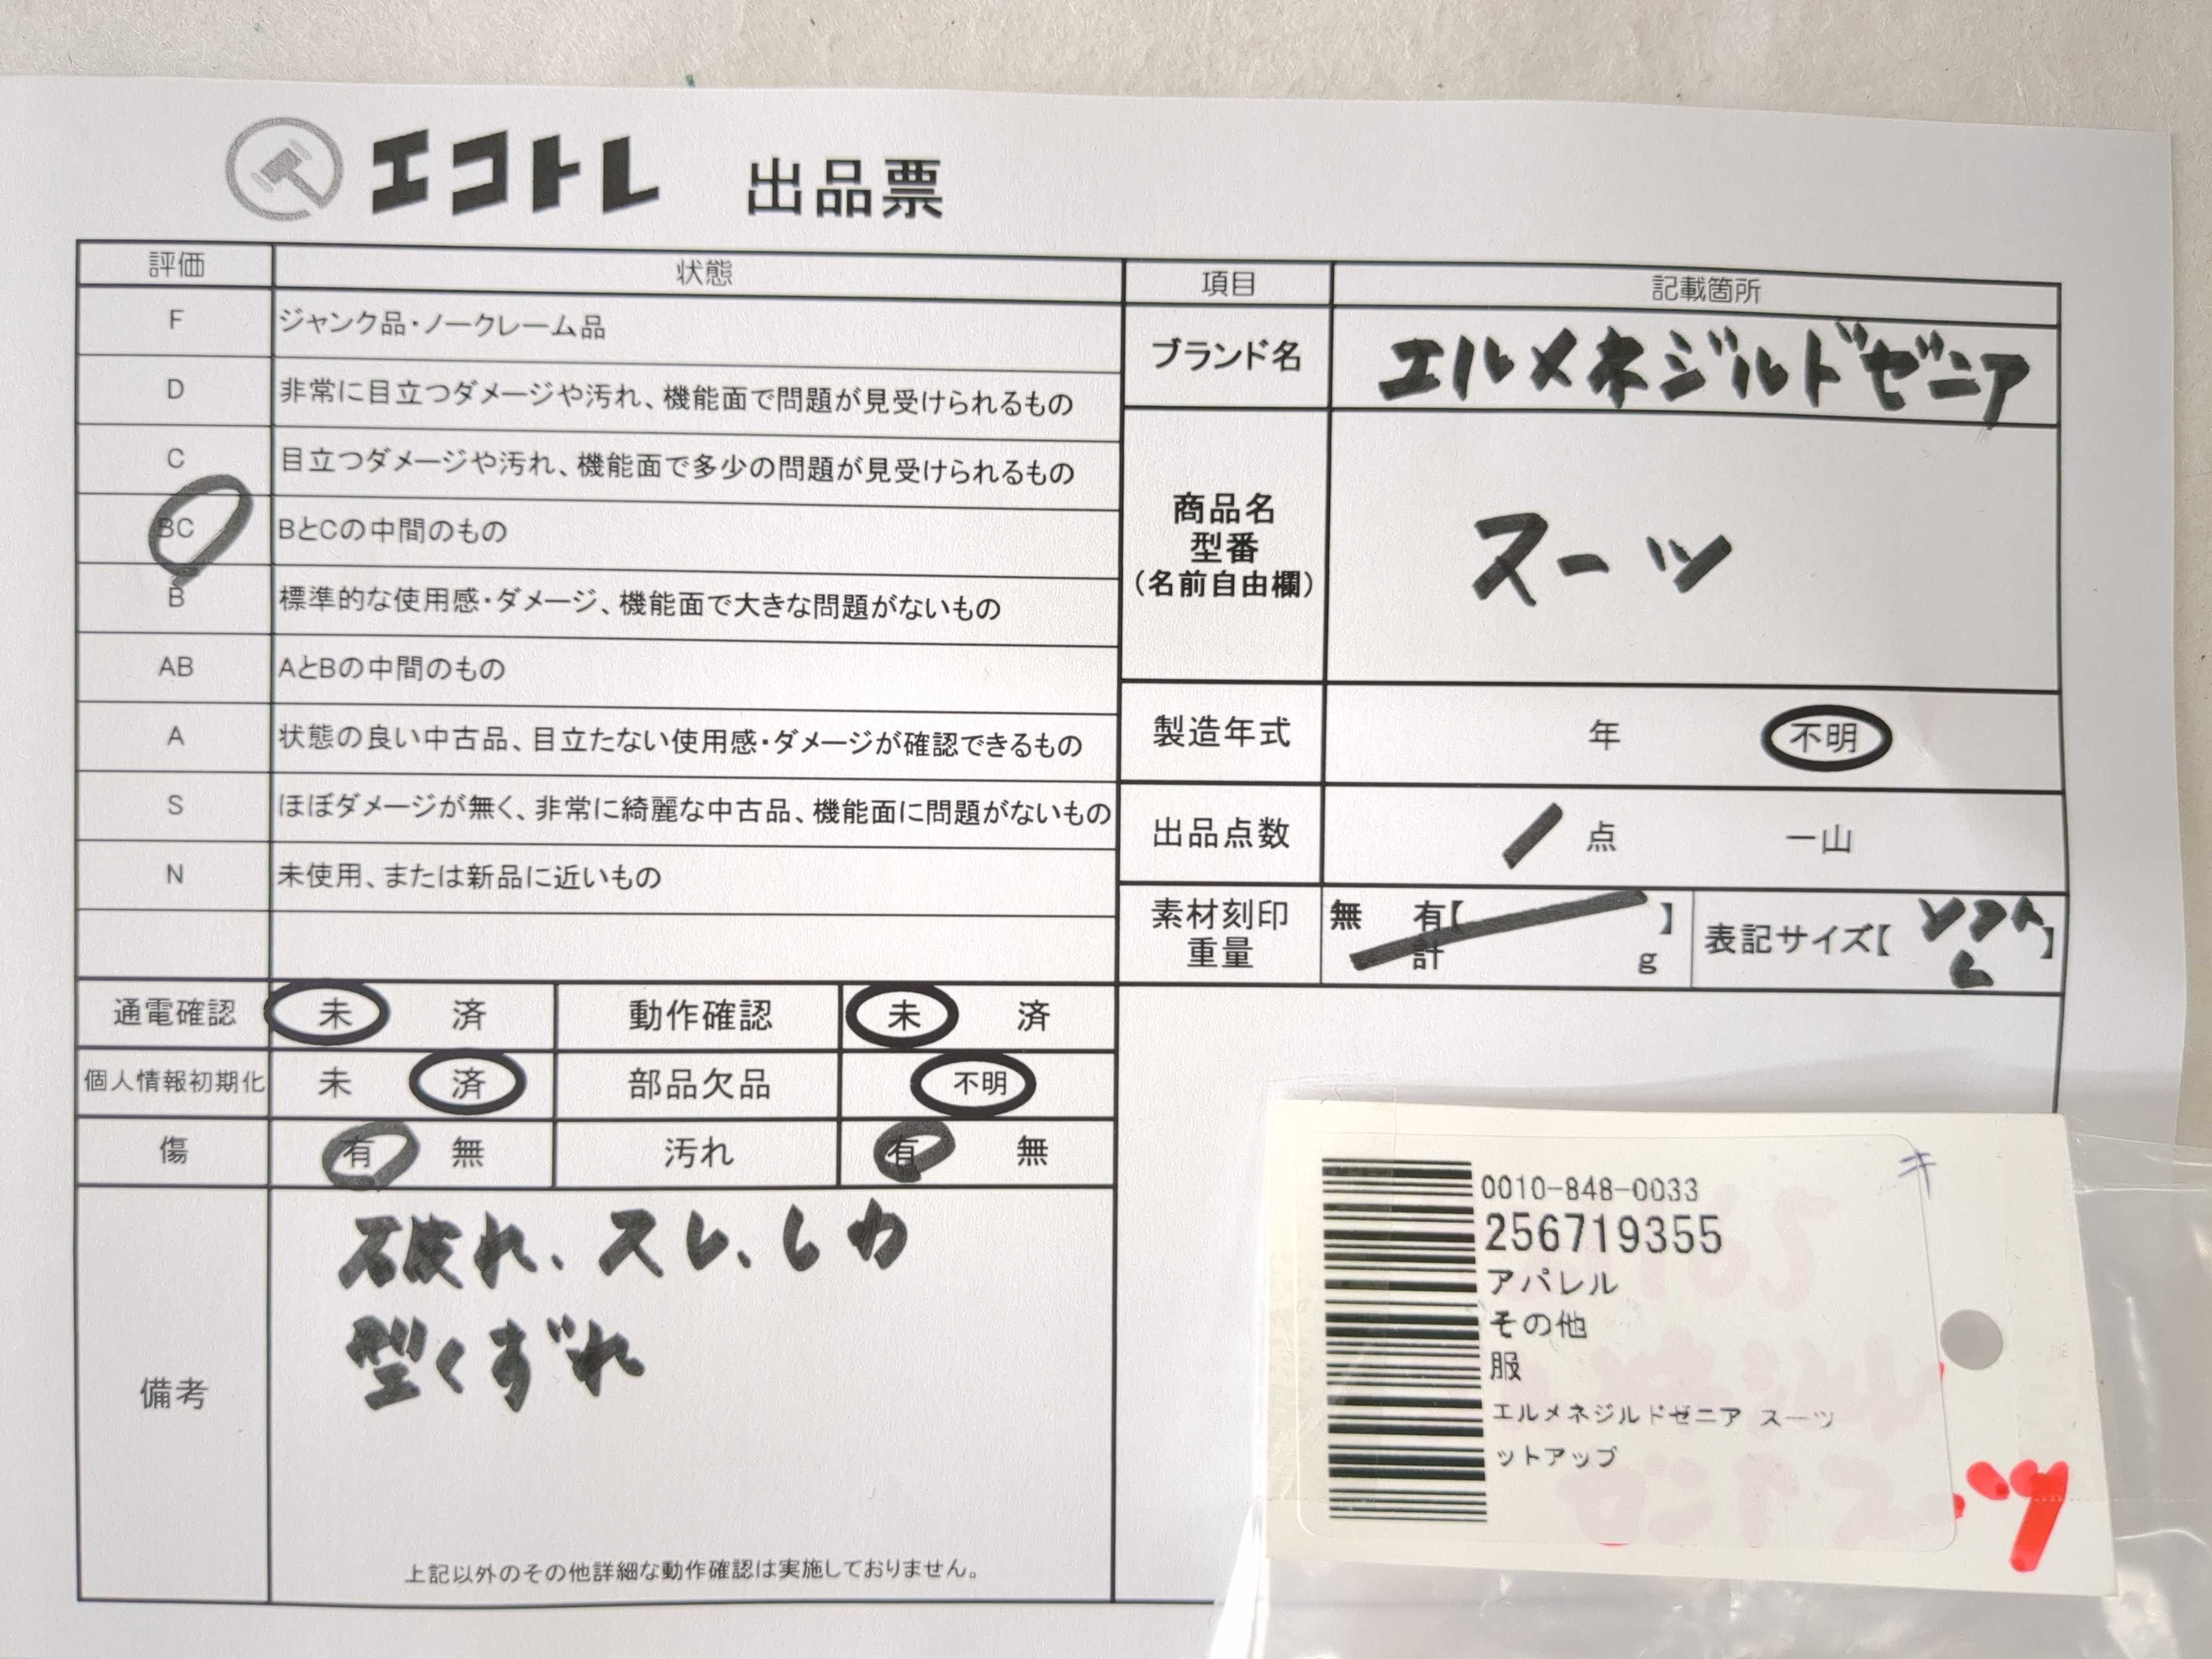 エコトレ 出品票
評価 状態
F ジャンク品・ノークレーム品
D 非常に目立つダメージや汚れ、機能面で問題が見受けられるもの
C 目立つダメージや汚れ、機能面で多少の問題が見受けられるもの
BC BとCの中間のもの
B 標準的な使用感・ダメージ、機能面で大きな問題がないもの
AB AとBの中間のもの
A 状態の良い中古品、目立たない使用感・ダメージが確認できるもの
S ほぼダメージが無く、非常に綺麗な中古品、機能面に問題がないもの
N 未使用、または新品に近いもの
通電確認 未 済 動作確認 未 済
個人情報初期化 未 済 部品欠品 不明
傷 有 無 汚れ 有 無
備考
破れ、スレ、しわ
型くずれ
上記以外のその他詳細な動作確認は実施しておりません。
項目 記載箇所
ブランド名 エルメネジルドゼニア
商品名
型番
(名前自由欄)
スーツ
製造年式 年 不明
出品点数 1 点 一山
素材刻印
重量
無 有【 】
計 g
表記サイズ【 】
0010-848-0033
256719355
アパレル
その他
服
エルメネジルドゼニア スーツ
ットアップ
キ